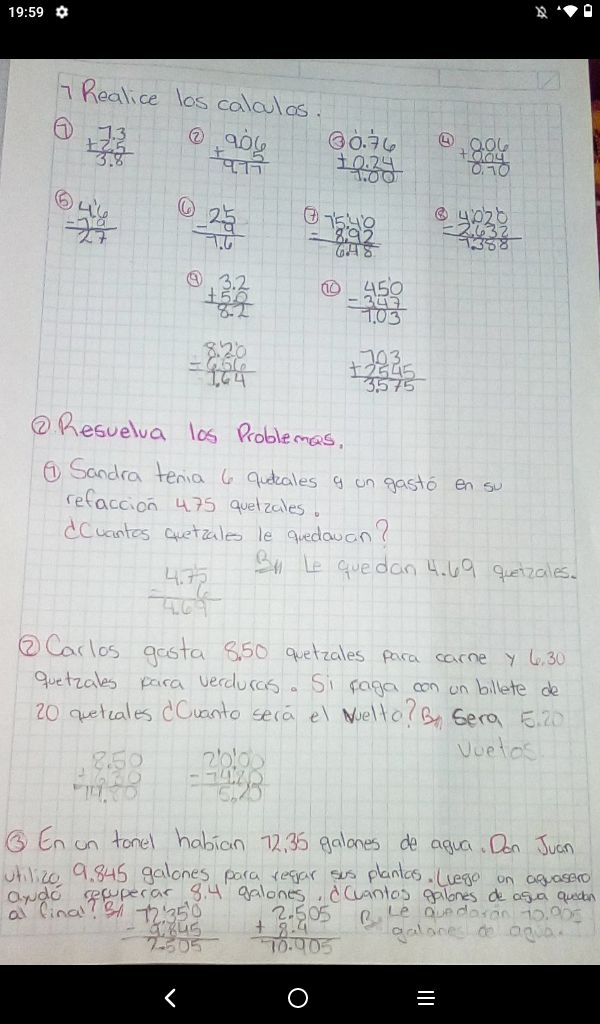 19:59
1 Realice los calculos.
① 1.3 + 2.5 3.8
② 906 + 5 911
③ 0.76 + 0.24 1.00
④ 0.06 + 0.04 0.10
⑤ 4.6 - 1.9 27
⑥ 25 - 9 1.6
⑦ 15.40 - 8.92 6.48
⑧ 4.020 - 2.632 1.388
⑨ 3.2 + 5.0 8.2
⑩ 450 - 347 1.03
8.20 - 6.56 1.64
103 + 2545 3.575
② Resuelva los Problemas.
① Sandra tenia 6 quetzales y un gastó en su
refacción 4.75 quetzales.
¿Cuantos quetzales le quedavan?
R// Le quedan 4.69 quetzales.
4.75 - 6 4.69
② Carlos gasta 8.50 quetzales para carne y 6.30
quetzales para verduras. Si paga con un billete de
20 quetzales ¿Cuanto será el vuelto? R// Sera 5.20
vueltos
8.50 + 6.30 14.80
20.00 - 14.20 5.20
③ En un tonel habían 12.35 galones de agua. Don Juan
utilizo 9.845 galones para regar sus plantas. Luego un aguasero
ayudó recuperar 8.4 galones. ¿Cuantos galones de agua quedan
al final? R// 12.350 - 9.845 2.505
2.505 + 8.4 10.905
R// Le quedaron 10.905
galones de agua.